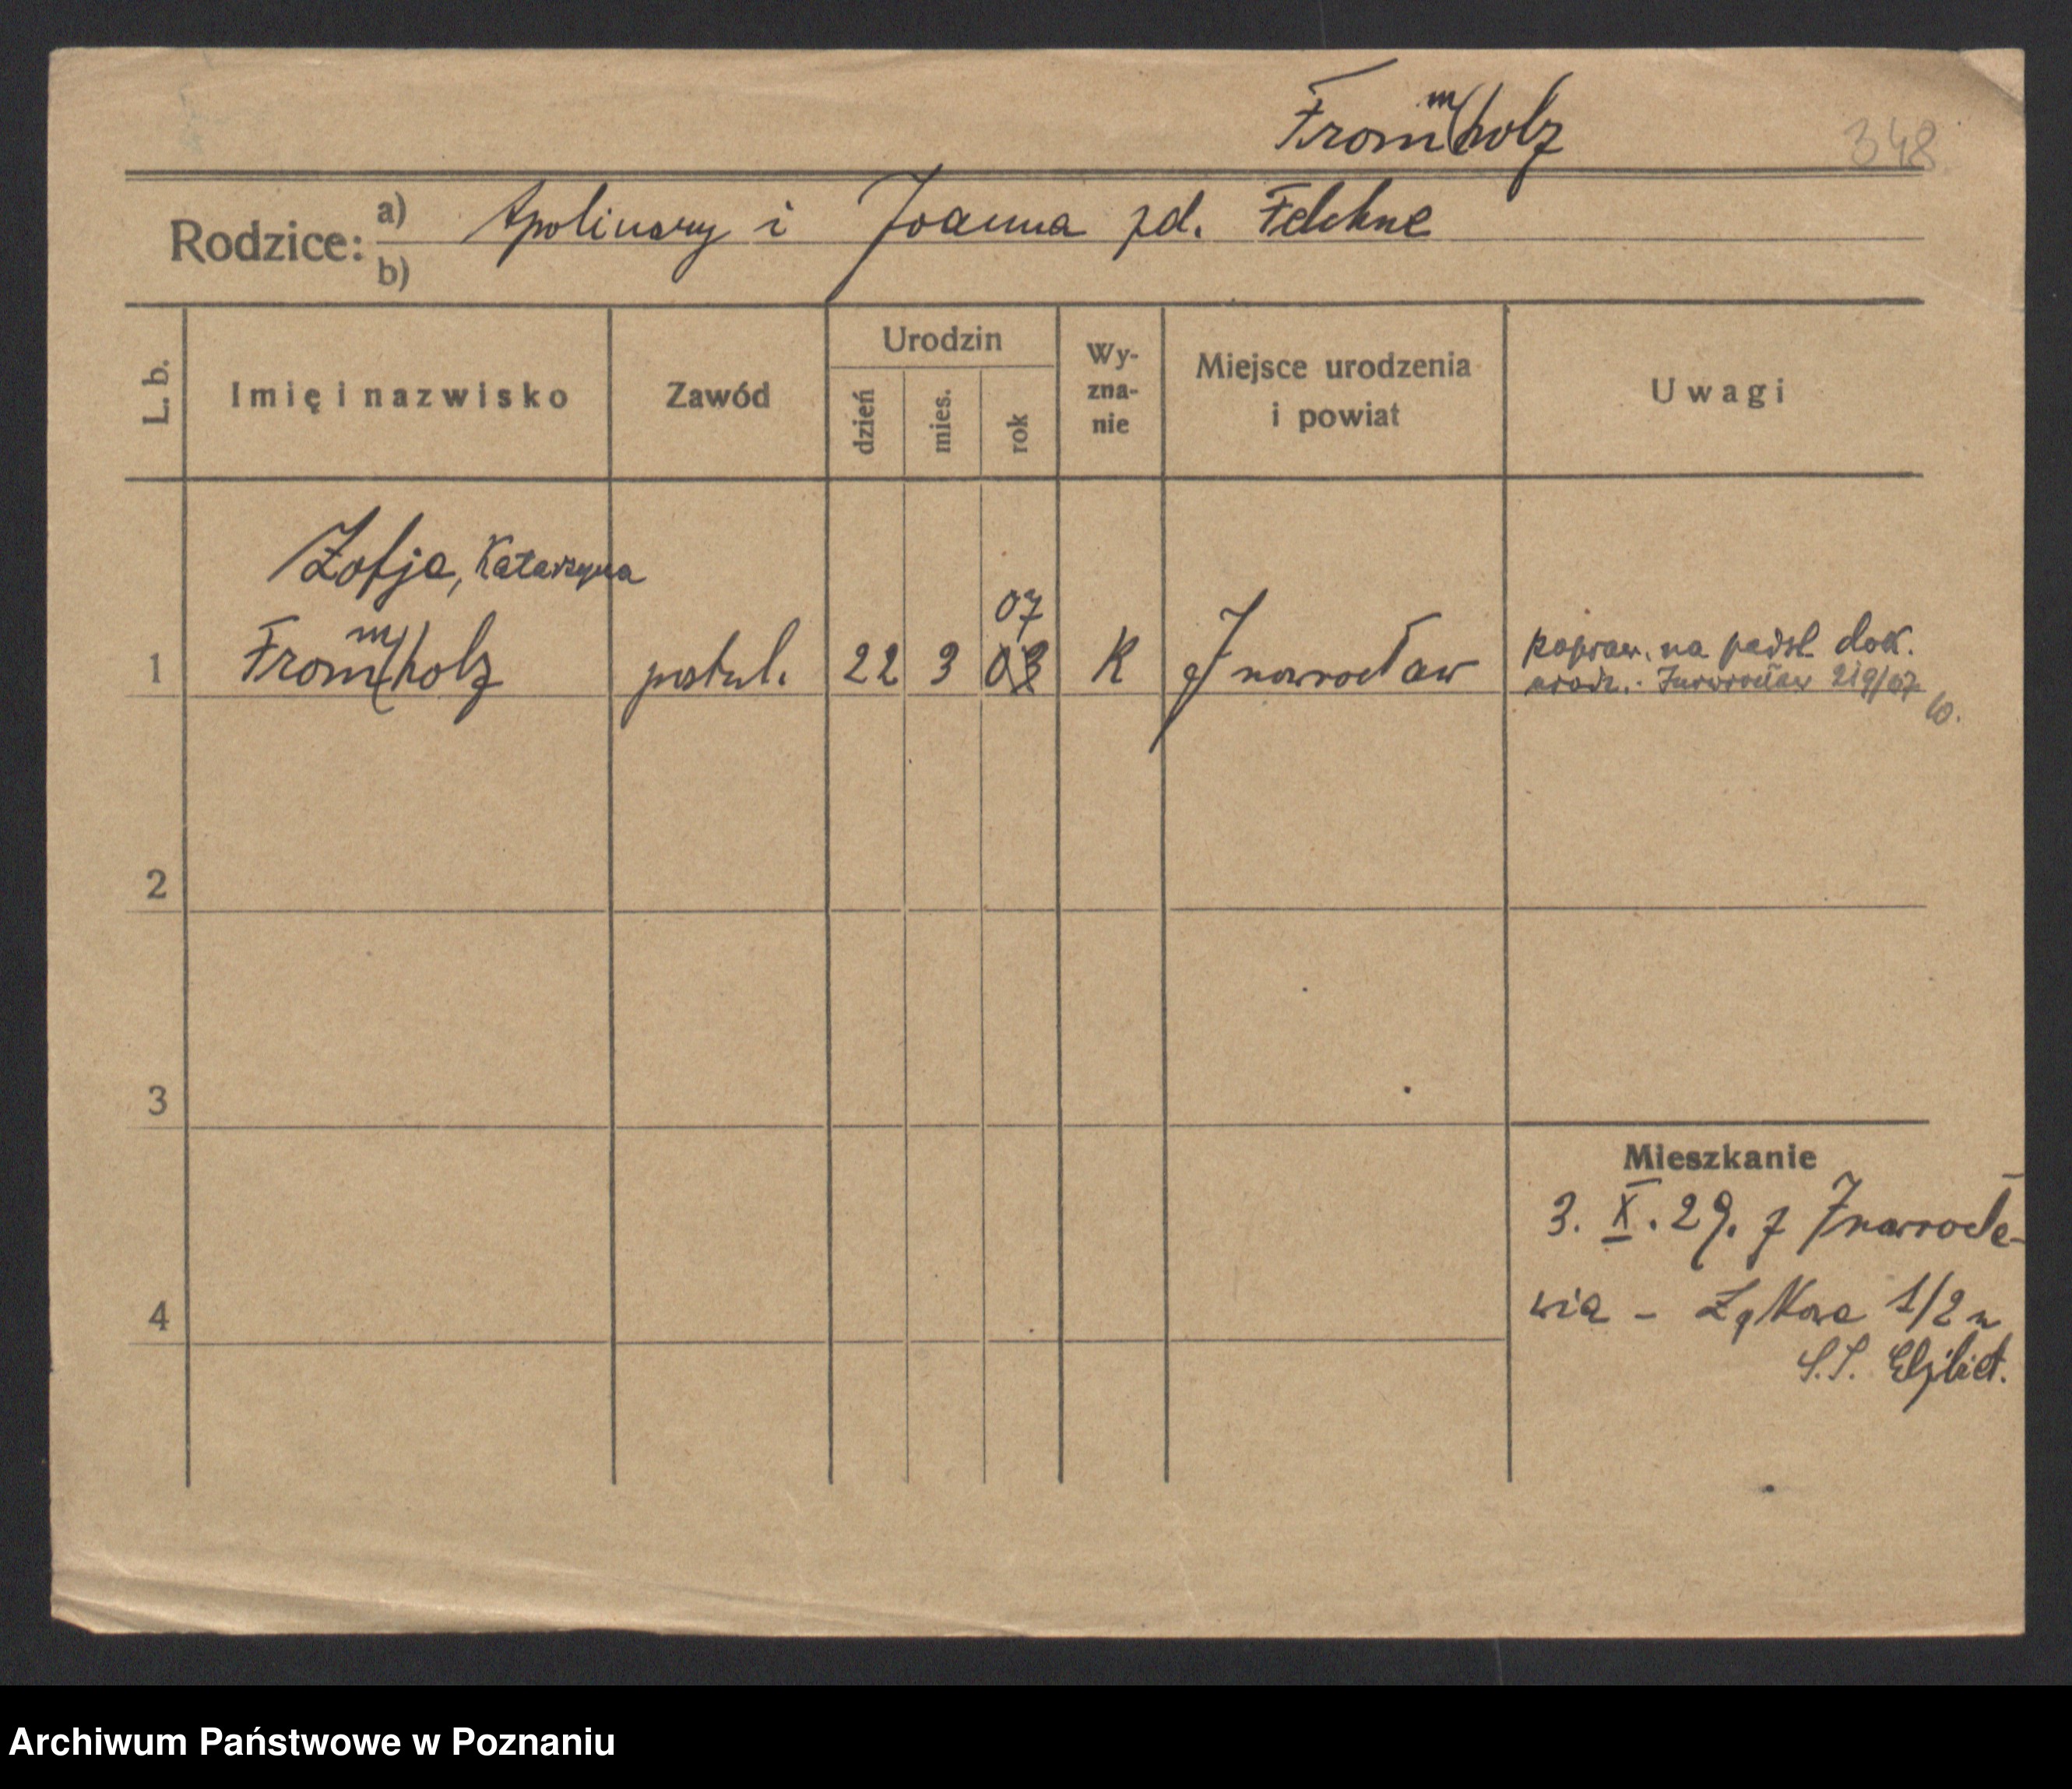 Frommholz
348
Rodzice: a) Apolinary i Joanna zd. Felchne
b)
L. b. Imię i nazwisko Zawód Urodzin dzień mies. rok Wy-zna-nie Miejsce urodzenia i powiat Uwagi
Zofja, Katarzyna
07
1 Frommholz postul. 22 3 03 K Inowrocław popraw. na podst. dok.
urodz. Inowrocław 219/07
2
3
Mieszkanie
3. X. 29. z Inowrocła-
4 wia - Łąkowa 1/2 u
S.S. Elżbiet.
Archiwum Państwowe w Poznaniu